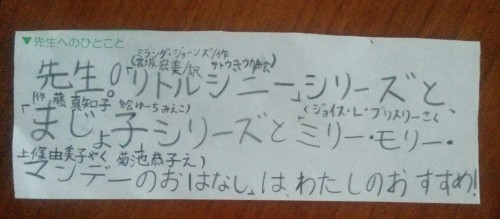 ▼先生へのひとこと
ミランダ・ジョーンズ/作
(宮坂宏美/訳 サトウユカ/絵)
先生。「リトルジニー」シリーズと、
作 藤真知子 絵ゆーちみえこ (ジョイス・L・ブリスリーさく
「まじょ子シリーズとミリー・モリー・
上條由美子やく 菊池恭子え)
マンデーのおはなし」は、わたしのおすすめ!